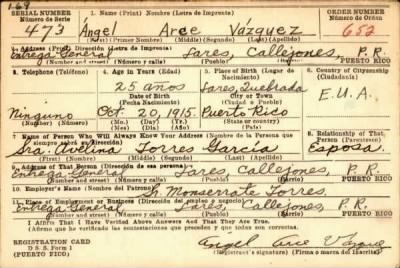 169
SERIAL NUMBER 1. Name (Print) Nombre (Letra de Imprenta) ORDER NUMBER
Número de Serie Número de Orden
473 Ángel Arce Vázquez 652
(First) (Nombre) (Middle) (Segundo) (Last) (Apellido)
2. Address (Print) Dirección (Letra de Imprenta)
Entrega General Lares, Callejones, P. R.
(Number and street) (Número y calle) (Town) (Pueblo) PUERTO RICO
3. Telephone (Teléfono) 4. Age in Years (Edad) 5. Place of Birth (Lugar de Nacimiento) 6. Country of Citizenship (Ciudadanía)
25 años Lares, Quebrada
Date of Birth City or Town
(Fecha Nacimiento) (Ciudad o Pueblo) E. U. A.
Ninguno Oct. 20, 1915. Puerto Rico
(State or country)
7. Name of Person Who Will Always Know Your Address (Nombre de la Persona que siempre sabrá su Dirección) 8. Relationship of That Person (Parentesco)
Sra. Torres García Esposa
(First) (Nombre) (Middle) (Segundo) (Last) (Apellido)
9. Address of That Person (Dirección de esa persona)
Entrega General Lares Callejones, P. R.
(Number and street) (Número y calle) (Town) (Pueblo) PUERTO RICO
10. Employer's Name (Nombre del Patrono)
Monserrate Torres
11. Place of Employment or Business (Dirección del empleo o negocio)
Entrega General Lares, Callejones, P. R.
(Number and street) (Número y calle) (Town) (Pueblo) PUERTO RICO
I Affirm That I Have Verified Above Answers And That They Are True.
(Afirmo que he verificado las contestaciones que preceden y que todas son correctas.
REGISTRATION CARD
D. S. S. Form 1 Angel Arce Vázquez
(PUERTO RICO) (Registrant's signature) (Firma o marca del Inscrito)